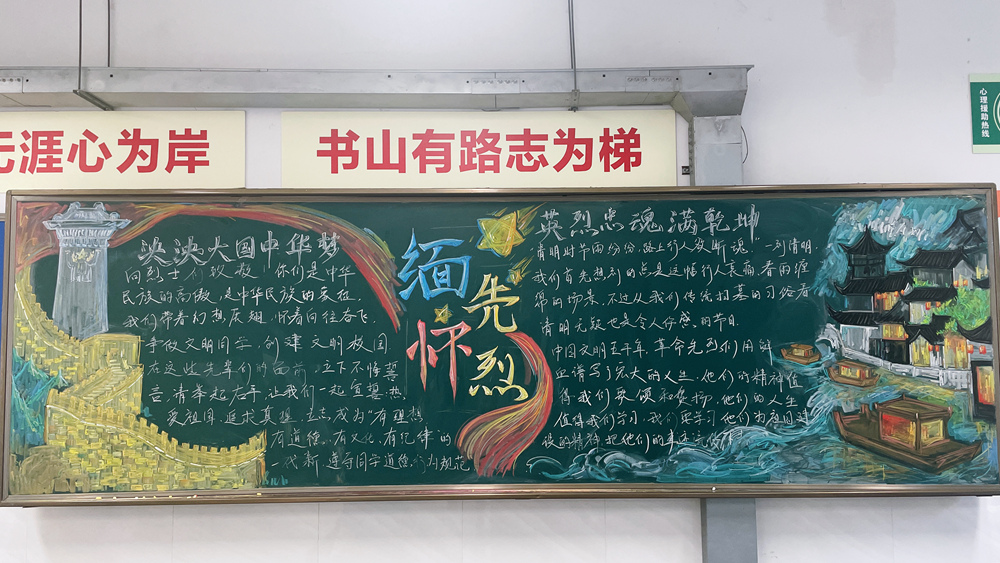 无涯心为岸
书山有路志为梯
心理援助热线
泱泱大国中华梦
向烈士们致敬！你们是中华
民族的高傲，是中华民族的象征。
我们带着幻想展翅，怀着向往奋飞，
争做文明同学，创建文明校园。
在这些先辈们的面前，立下不悔誓
言，请举起右手，让我们一起宣誓：热
爱祖国，追求真理，立志成为“有理想
有道德、有文化、有纪律的
一代新，遵守同学道德行为规范
缅怀
先烈
英烈忠魂满乾坤
“清明时节雨纷纷，路上行人欲断魂”一到清明，
我们首先想到的总是这幅行人哀痛，春雨缠
绵的场景，不过从我们传统扫墓的习俗看
清明无疑也是令人伤感的节日。
中国文明五千年，革命先烈们用鲜
血谱写了宏大的人生，他们的精神值
得我们要颂和发扬，他们的人生
值得我们学习，我们要学习他们为祖国建
设的精神，把他们的